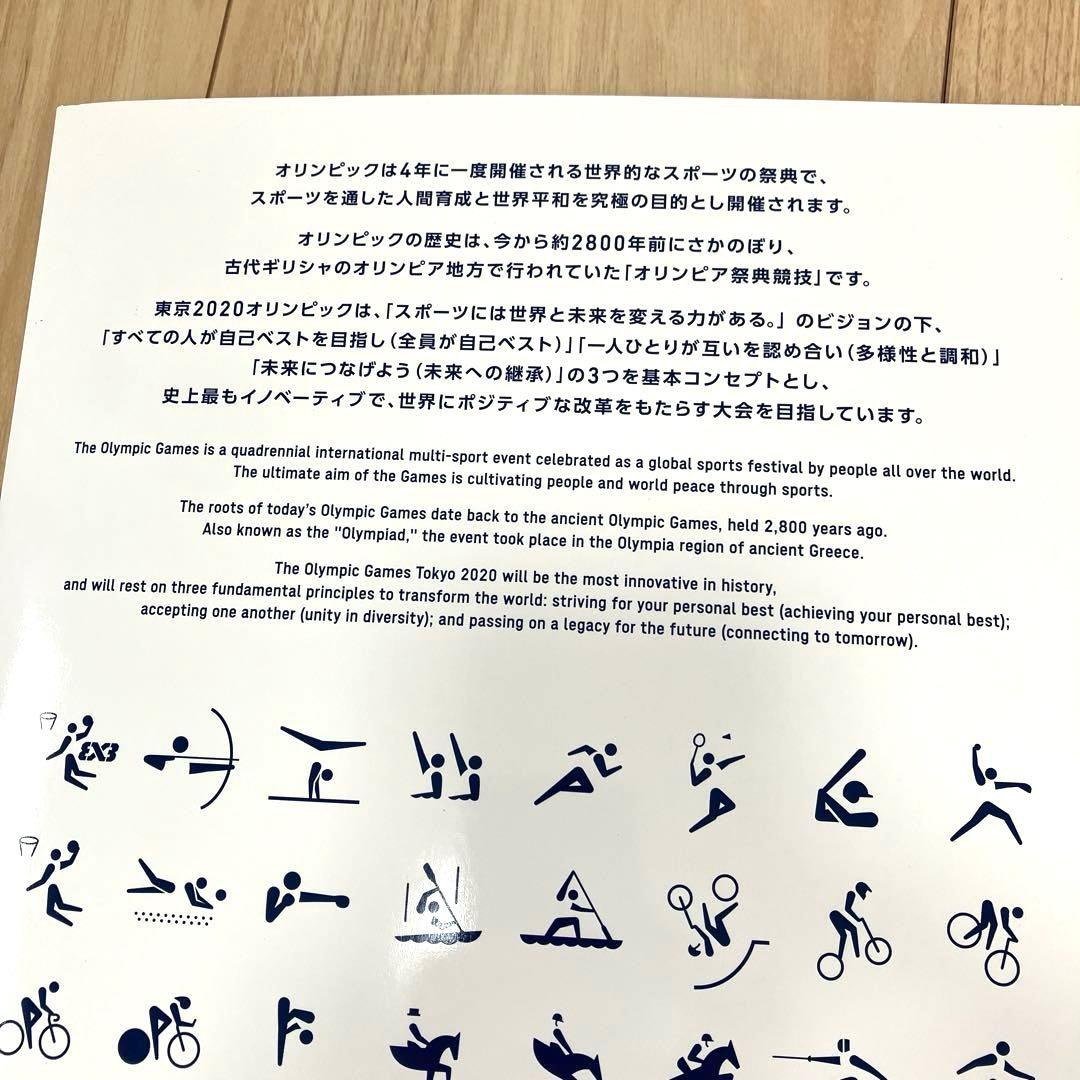 オリンピックは4年に一度開催される世界的なスポーツの祭典で、
スポーツを通した人間育成と世界平和を究極の目的とし開催されます。
オリンピックの歴史は、今から約2800年前にさかのぼり、
古代ギリシャのオリンピア地方で行われていた「オリンピア祭典競技」です。
東京2020オリンピックは、「スポーツには世界と未来を変える力がある。」のビジョンの下、
「すべての人が自己ベストを目指し（全員が自己ベスト）」「一人ひとりが互いを認め合い（多様性と調和）」
「未来につなげよう（未来への継承）」の3つを基本コンセプトとし、
史上最もイノベーティブで、世界にポジティブな改革をもたらす大会を目指しています。
The Olympic Games is a quadrennial international multi-sport event celebrated as a global sports festival by people all over the world.
The ultimate aim of the Games is cultivating people and world peace through sports.
The roots of today's Olympic Games date back to the ancient Olympic Games, held 2,800 years ago.
Also known as the "Olympiad," the event took place in the Olympia region of ancient Greece.
The Olympic Games Tokyo 2020 will be the most innovative in history,
and will rest on three fundamental principles to transform the world: striving for your personal best (achieving your personal best);
accepting one another (unity in diversity); and passing on a legacy for the future (connecting to tomorrow).
3X3